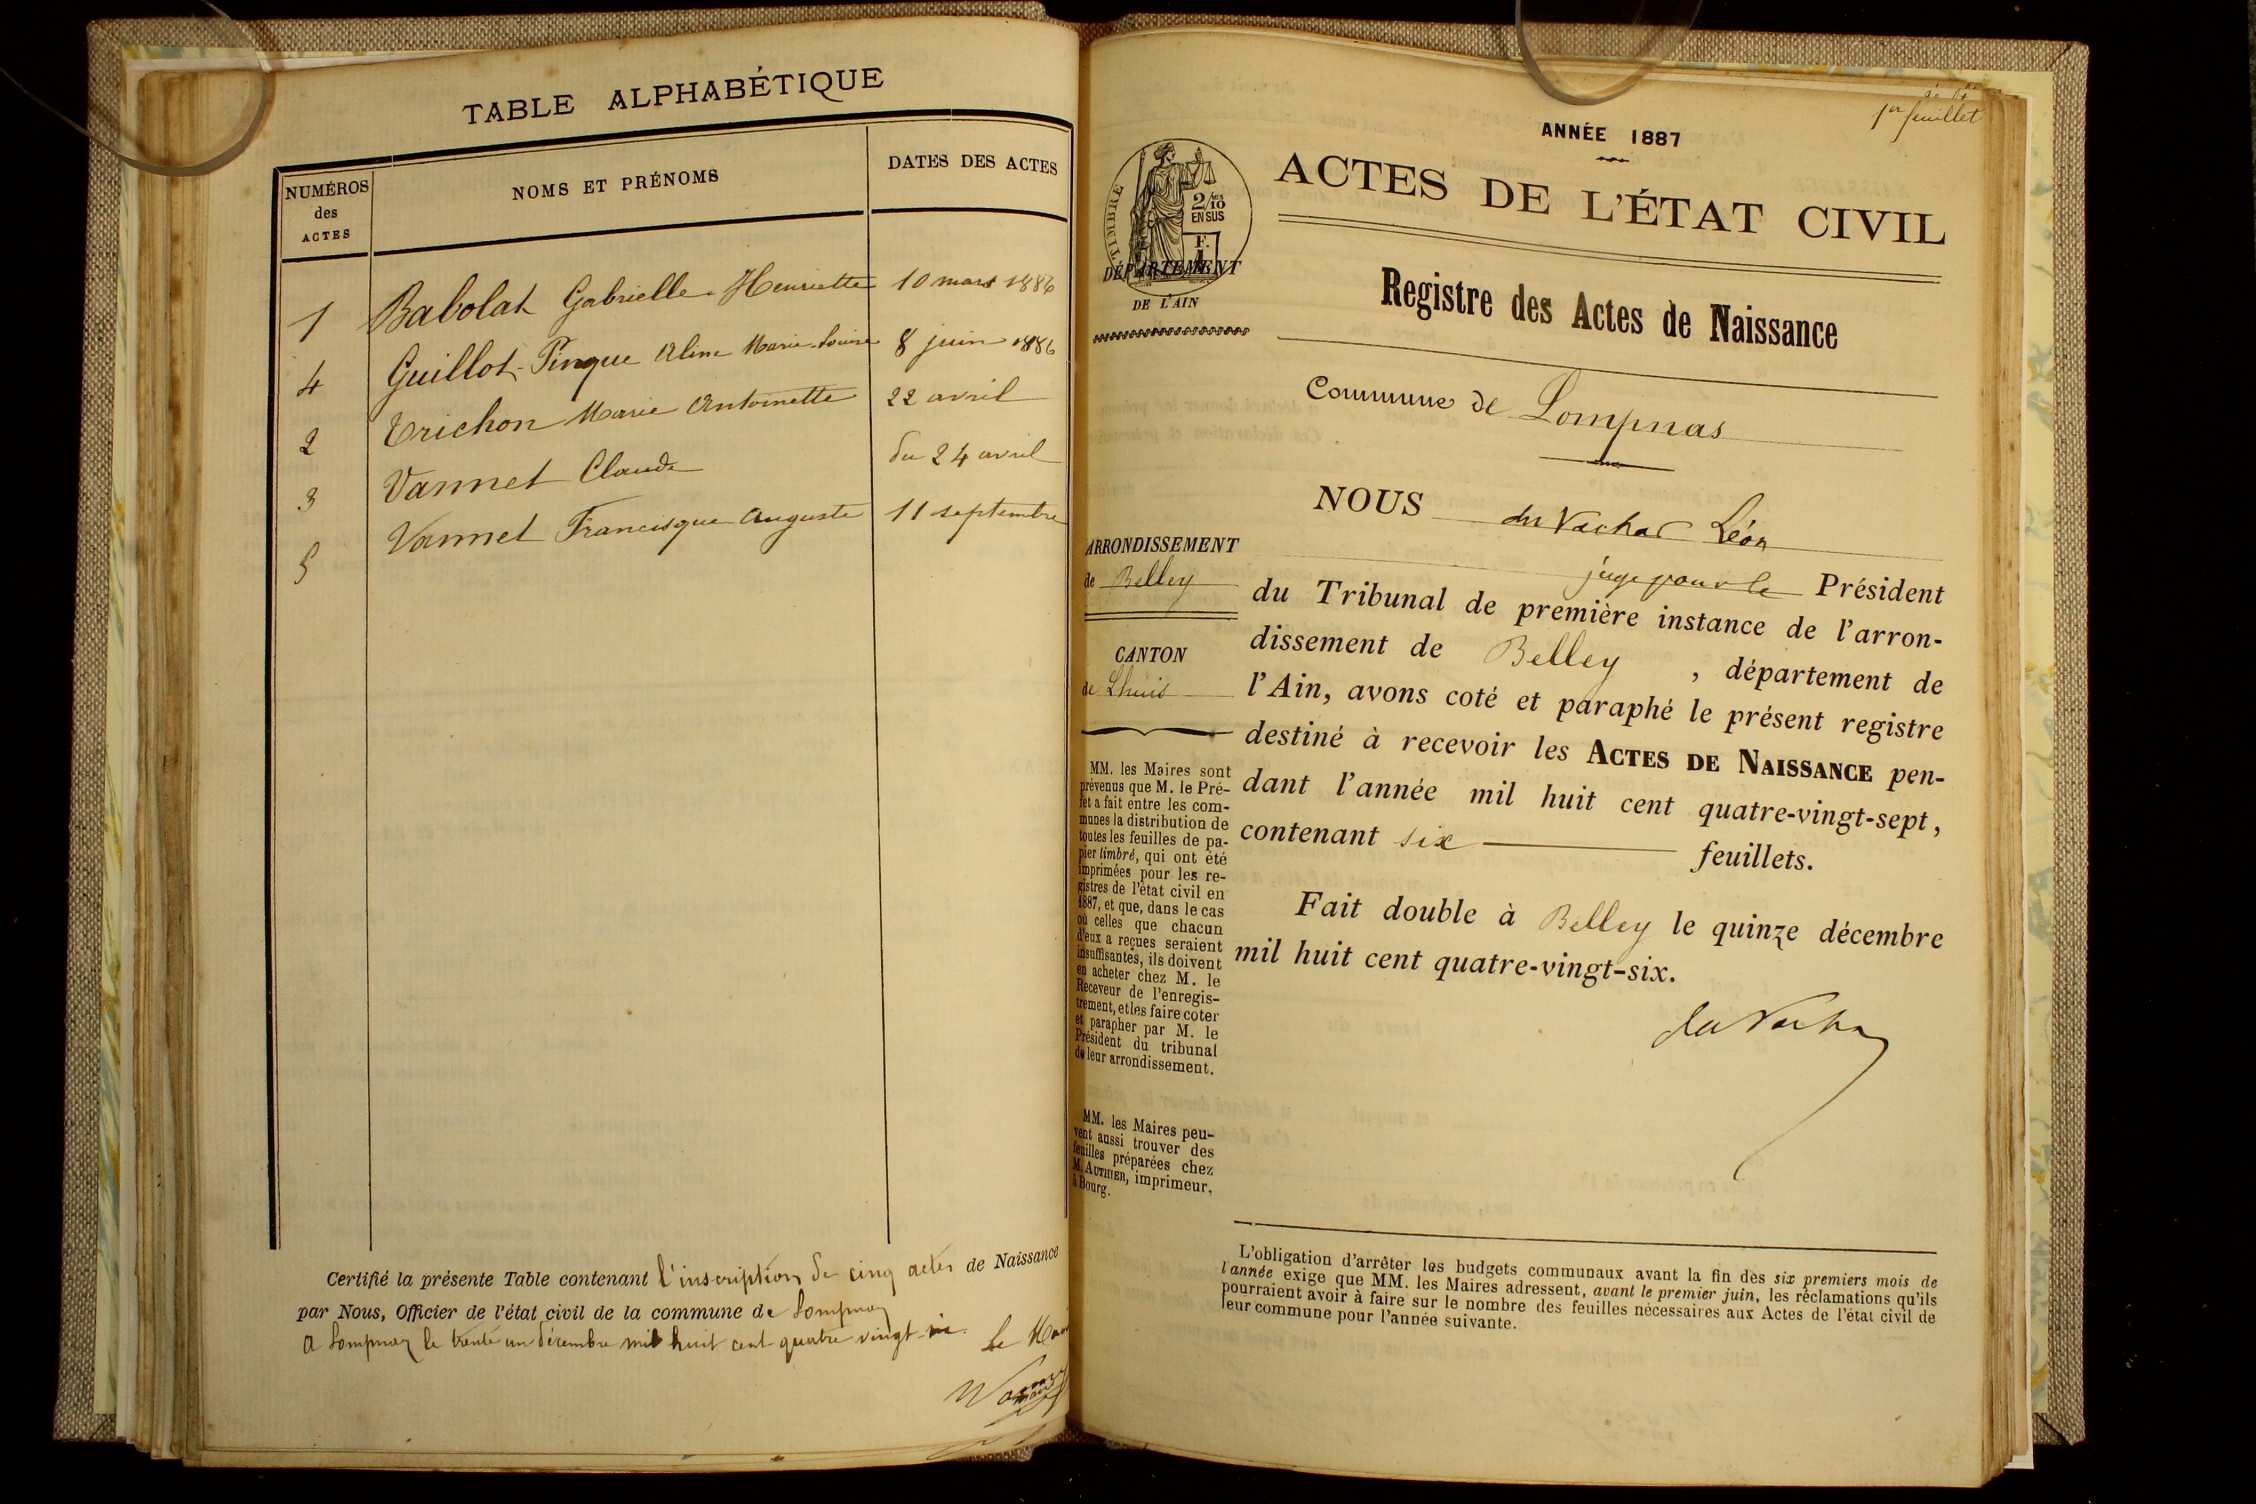 TABLE ALPHABÉTIQUE
NUMÉROS des ACTES
NOMS ET PRÉNOMS
DATES DES ACTES
1 Babolat Gabrielle Henriette 10 mars 1886
4 Guillot-Pingue Aline Marie-Louise 8 juin 1886
2 Trichon Marie Antoinette 22 avril
3 Vannet Claude du 24 avril
5 Vannet Francisque Auguste 11 septembre
Certifié la présente Table contenant l'inscription de cinq actes de Naissance
par Nous, Officier de l'état civil de la commune de Lompnaz
A Lompnaz le trente un décembre mil huit cent quatre vingt six. Le Maire
1er feuillet
ANNÉE 1887
ACTES DE L'ÉTAT CIVIL
TIMBRE
2/10
EN SUS
F.
1
DÉPARTEMENT
DE L'AIN
Registre des Actes de Naissance
Commune de Lompnas
ARRONDISSEMENT
de Belley
CANTON
de Lhuis
MM. les Maires sont
prévenus que M. le Pré-
fet a fait entre les com-
munes la distribution de
toutes les feuilles de pa-
pier timbré, qui ont été
imprimées pour les re-
gistres de l'état civil en
1887, et que, dans le cas
où celles que chacun
d'eux a reçues seraient
insuffisantes, ils doivent
en acheter chez M. le
Receveur de l'enregis-
trement, et les faire coter
et parapher par M. le
Président du tribunal
de leur arrondissement.
MM. les Maires peu-
vent aussi trouver des
feuilles préparées chez
M. AUTHIER, imprimeur,
à Bourg.
NOUS du Vachat Léon
juge pour le Président
du Tribunal de première instance de l'arron-
dissement de Belley, département de
l'Ain, avons coté et paraphé le présent registre
destiné à recevoir les ACTES DE NAISSANCE pen-
dant l'année mil huit cent quatre-vingt-sept,
contenant six feuillets.
Fait double à Belley le quinze décembre
mil huit cent quatre-vingt-six.
du Vachat
L'obligation d'arrêter les budgets communaux avant la fin des six premiers mois de
l'année exige que MM. les Maires adressent, avant le premier juin, les réclamations qu'ils
pourraient avoir à faire sur le nombre des feuilles nécessaires aux Actes de l'état civil de
leur commune pour l'année suivante.